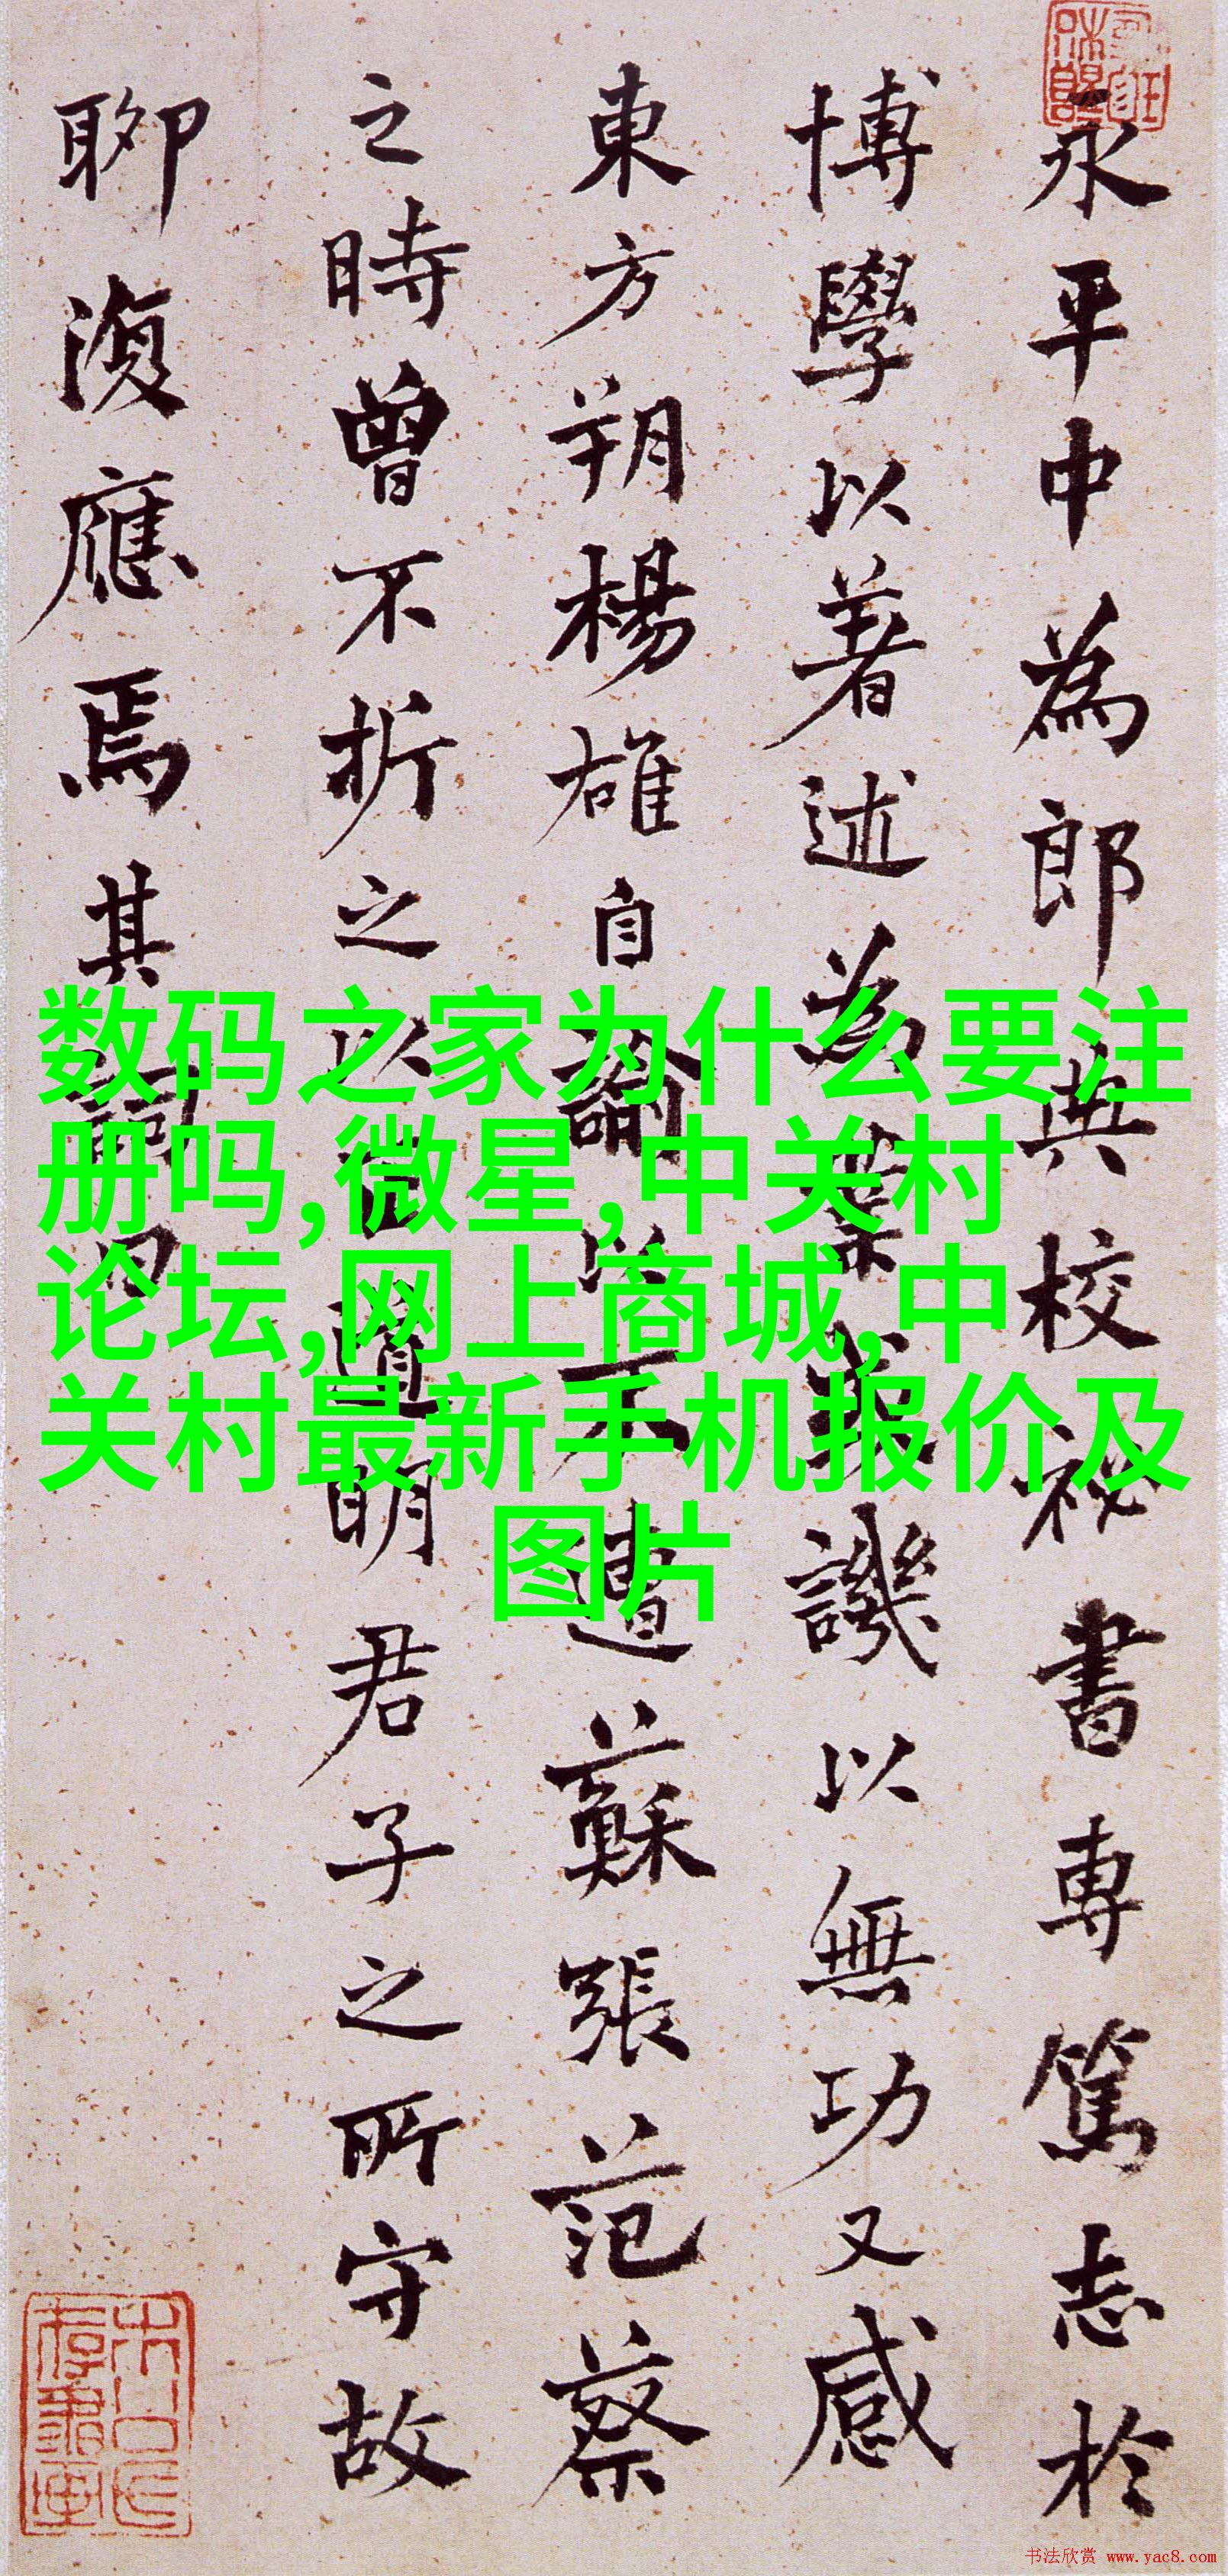 永平中為郎典校祕書專篤志於
博學以著述為業或譏以無功又感
東方朔楊雄自論以不遭蘇張范蔡
之時曾不折之以正道明君子之所守故
聊復應焉其詞曰
数码之家为什么要注
册吗,微星,中关村
论坛,网上商城,中
关村最新手机报价及
图片
书法欣赏 www.yac8.com